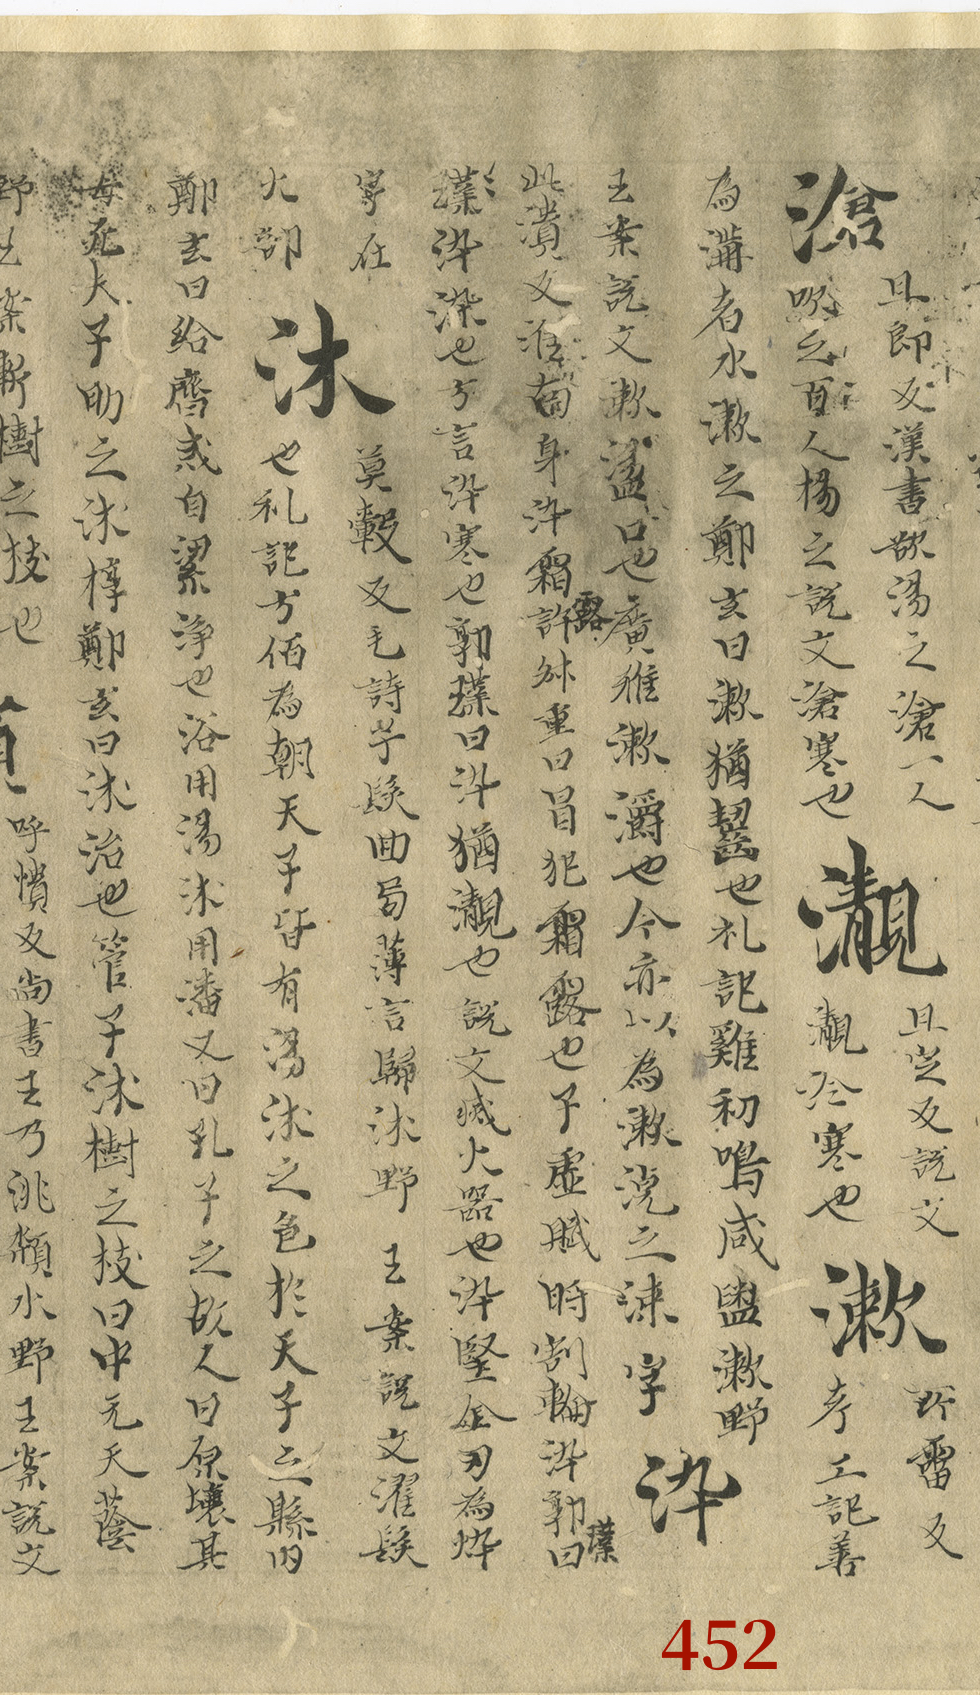 滄
且郎反漢書欲湯之滄一人
吹之百人楊之說文滄寒也
㵾
且定反說文
㵾冷寒也
漱
所霤反
考工記善
為溝者水漱之鄭玄曰漱猶齧也礼記雞初鳴咸盥漱野
王案說文漱盪口也廣雅漱灂也今亦以為漱浣之涑字
淬
此潰反淮南身淬霜露許叔重曰冒犯霜露也子虛賦時割輪淬郭璞曰
璞淬染也方言淬寒也郭璞曰淬猶㵾也說文滅火器也淬堅金刃為焠
字在
火部
沐
莫轂反毛詩予髮曲局薄言歸沐野王案說文濯髮
也礼記方伯為朝天子皆有湯沐之色於天子之縣内
鄭玄曰給齋戒自潔淨也浴用湯沐用潘又曰孔子之故人曰原壤其
母死夫子助之沐槨鄭玄曰沐治也管子沐樹之枝曰中元天蔭
野王案斬樹之枝也
呼憒反尚書王乃洮頮水野王案說文
452